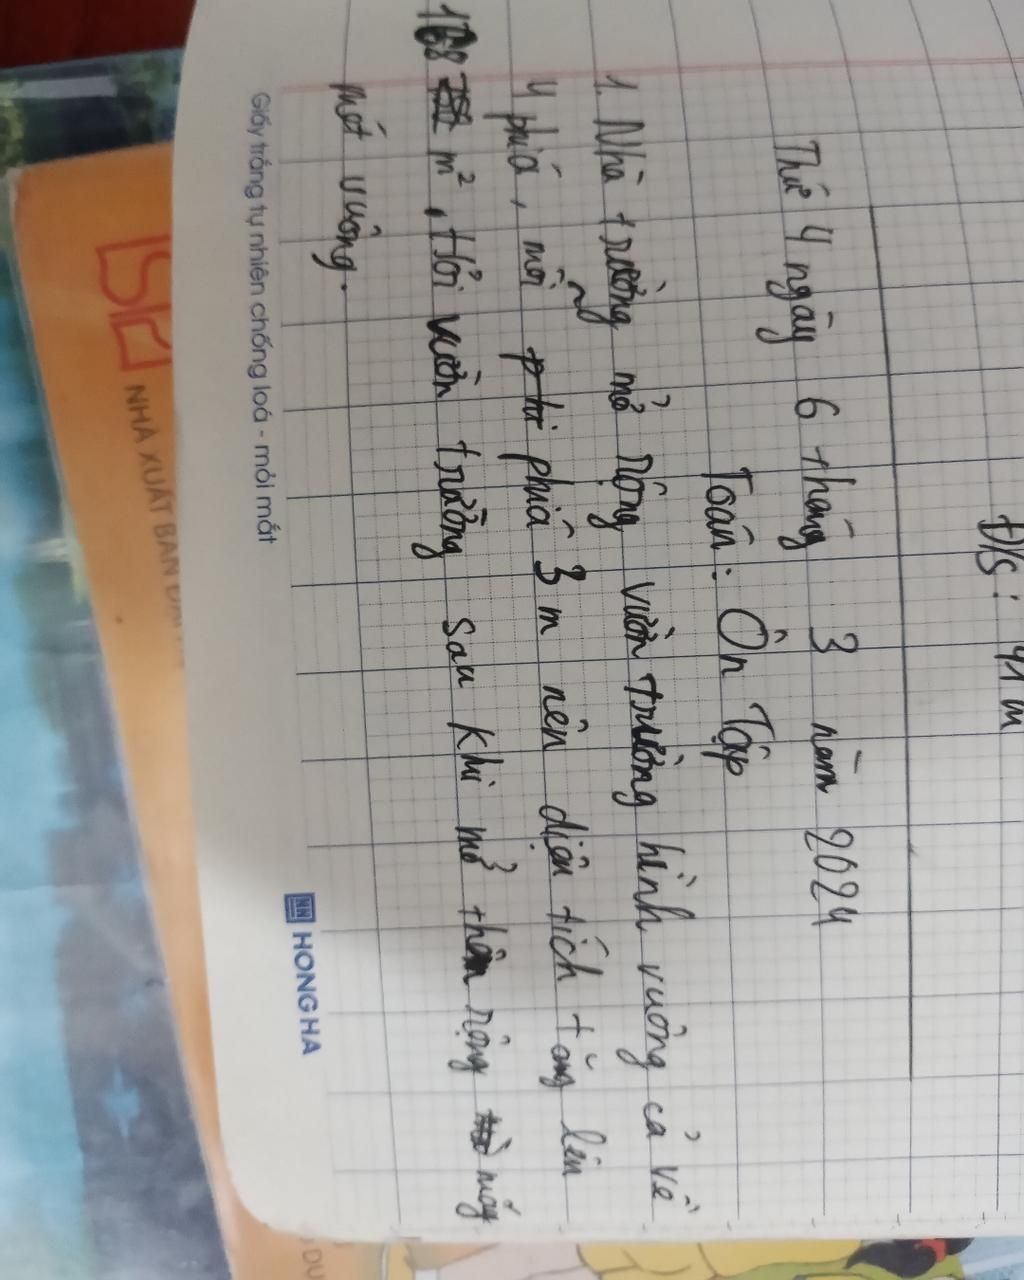 Đ/s: 41 m
Thứ 4 ngày 6 tháng 3 năm 2024
Toán: Ôn Tập
1. Nhà trường mở rộng vườn trường hình vuông cả về
4 phía, mỗi phía 3 m nên diện tích tăng lên
168 m², Hỏi vườn trường sau khi mở thêm rộng mấy
mét vuông.
Giấy trắng tự nhiên chống loá - mỏi mắt
HONG HA
NHÀ XUẤT BẢN